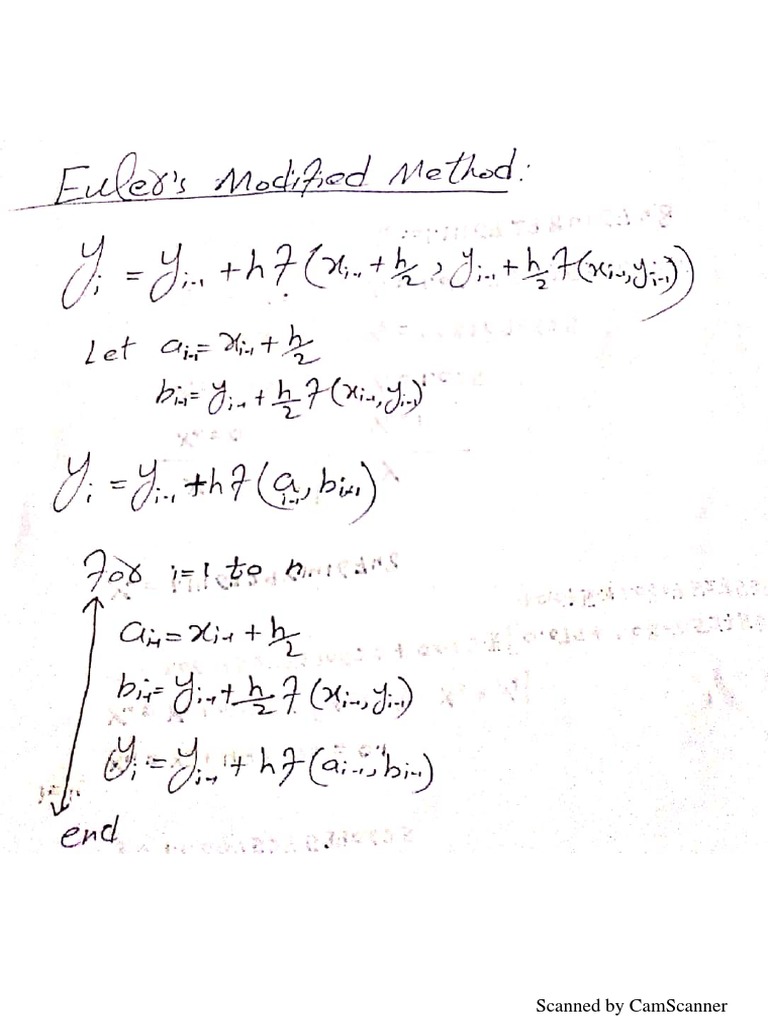 Euler's Modified Method:
y_i = y_{i-1} + h f(x_{i-1} + h/2, y_{i-1} + h/2 f(x_{i-1}, y_{i-1}))
Let a_{i-1} = x_{i-1} + h/2
b_{i-1} = y_{i-1} + h/2 f(x_{i-1}, y_{i-1})
y_i = y_{i-1} + h f(a_{i-1}, b_{i-1})
For i=1 to n.
a_{i-1} = x_{i-1} + h/2
b_{i-1} = y_{i-1} + h/2 f(x_{i-1}, y_{i-1})
y_i = y_{i-1} + h f(a_{i-1}, b_{i-1})
end
Scanned by CamScanner